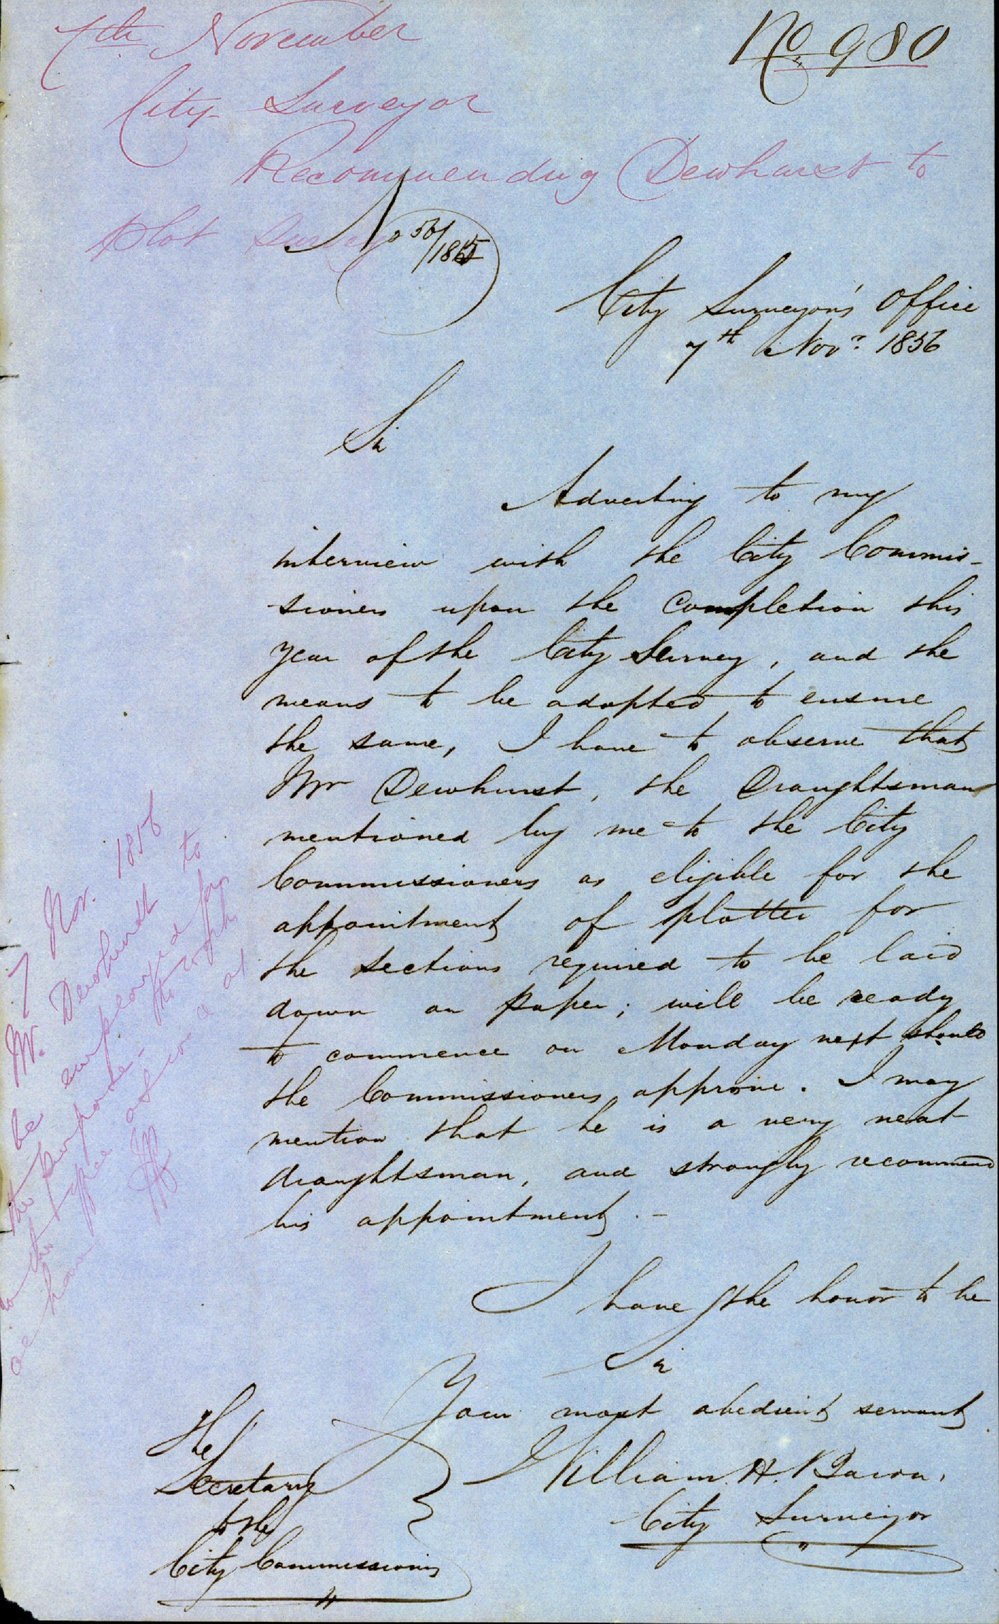 No 980
7th November
City Surveyor
Recommending Dewhurst to
plot Survey
No 56/1865
City Surveyor's Office
7th Novr. 1856
Sir
Adverting to my
interview with the City Commis-
sioners upon the Completion this
year of the City Survey, and the
means to be adopted to ensure
the same, I have to observe that
Mr Dewhurst, the Draughtsman
mentioned by me to the City
Commissioners as eligible for the
appointment of plotter for
the sections required to be laid
down on paper; will be ready
to commence on Monday next should
the Commissioners approve. I may
mention that he is a very neat
draughtsman, and strongly recommend
his appointment. -
I have the honor to be
Sir
Your most obedient servant
William H. Bacon.
City Surveyor
The
Secretary
to the
City Commissioners
7 Nov. 1856
Mr. Dewhurst to
be employed for
the purpose -